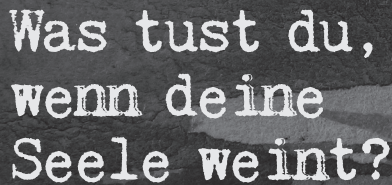 Was tust du,
wenn deine
Seele weint?